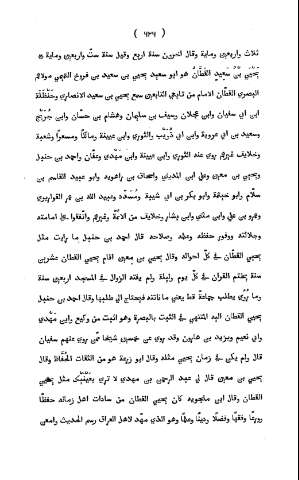 ( ٦٢٦ )
ثلاث واربعين وماية وقال اخرون سنة اربع وقيل سنة ست واربعين وماية ۞
يَحْيَى بْنُ سَعِيد القَطَّانُ هو ابو سعيد يحيى بن سعيد بن فروخ التميمي مولاهم
البصري القطّان الامام من تابعي التابعين سمع يحيى بن سعيد الانصاري وحَنْظَلَةَ
ابن ابي سفيان وابن عجلان وسيف بن سليمان وهشام بن حسّان وابن جُرَيْج
وسعيد بن ابي عروبة وابن ابي ذُرَيْب والثوري وابن عيينة ومالكًا ومسعرًا وشعبة
وخلايف غيرهم روى عنه الثوري وابن عيينة وابن مَهْدي وعفّان واحمد بن حنبل
ويحيى بن معين وعلي ابن المديني واسحاق بن راهويه وابو عبيد القاسم بن
سلّام وابو خيثمة وابو بكر بن ابي شيبة ومُسَدّد وعبيد الله بن عمر القواريري
وعمرو بن علي وابن مثنى وابن بشار وخلايف من الائمّة وغيرهم واتفقوا على امامته
وجلالته ووفور حفظه وعلمه وصلاحه قال احمد بن حنبل ما رايت مثل
يحيى القطّان في كلّ احواله وقال يحيى بن معين اقام يحيى القطّان عشرين
سنة يختم القران في كلّ يوم وليلة ولم يفته الزوال في المسجد اربعين سنة
وما رُئي يطلب جماعة قط يعني ما فاتته فيحتاج الى طلبها وقال احمد بن حنبل
يحيى القطّان اليه المنتهى في التثبت بالبصرة وهو اثبت من وكيع وابن مَهْدي
وابي نعيم ويزيد بن هارون وقد روى عن خمسين شيخًا ممن روى عنهم سفيان
قال ولم يكن في زمان يحيى مثله وقال ابو زرعة هو من الثقات الحُفّاظ وقال
يحيى بن معين قال لي عبد الرحمن بن مهدي لا ترى بعَيْنَيْك مثل يحيى
القطّان وقال ابن منجويه كان يحيى القطّان من سادات اهل زمانه حفظًا
وورعًا وفقهًا وفضلًا ودينًا وعلمًا وهو الذي مهّد لاهل العراق رسم الحديث وامعن